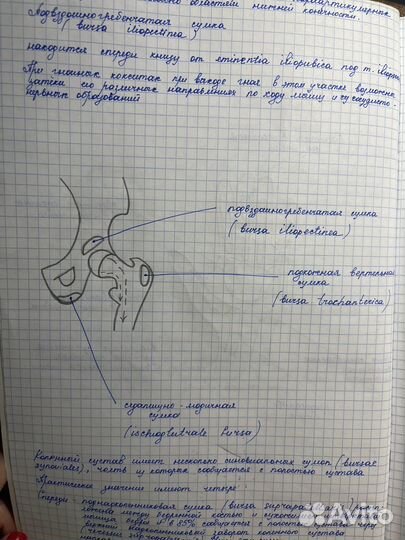 областям нижней конечности.
Подвздошногребенчатая сумка
(bursa iliopectinea)
находится спереди книзу от eminentia iliopubica под m.
При гнойных кокситах при выходе гноя в этом участке возможны
затёки его различных направлениях по ходу мышц и сосудисто-
нервных образований
подвздошногребенчатая сумка
(bursa iliopectinea)
подкожная вертельная
сумка
(bursa trochanterica)
седалищно-ягодичная
сумка
(ischiogluteale bursa)
Коленный сустав имеет несколько синовиальных сумок (bursae
synoviales), часть из которых сообщается с полостью сустава
Практическое значение имеют четыре:
спереди - поднадколенниковая сумка (bursa
между бедренной костью и
мышцы бедра и в 85% сообщается с полостью сустава через
верхний надколенниковый заворот коленного сустава
Avito